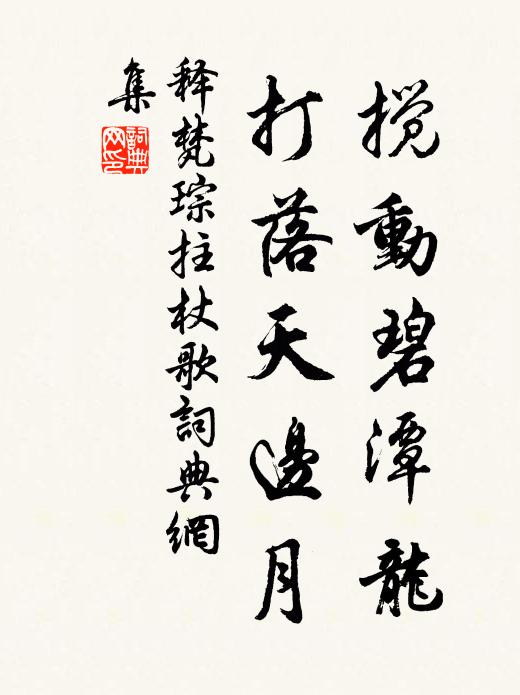 搅動碧潭龍
打落天邊月
释梵琮拄杖歌詞典網
集
詞典
网印